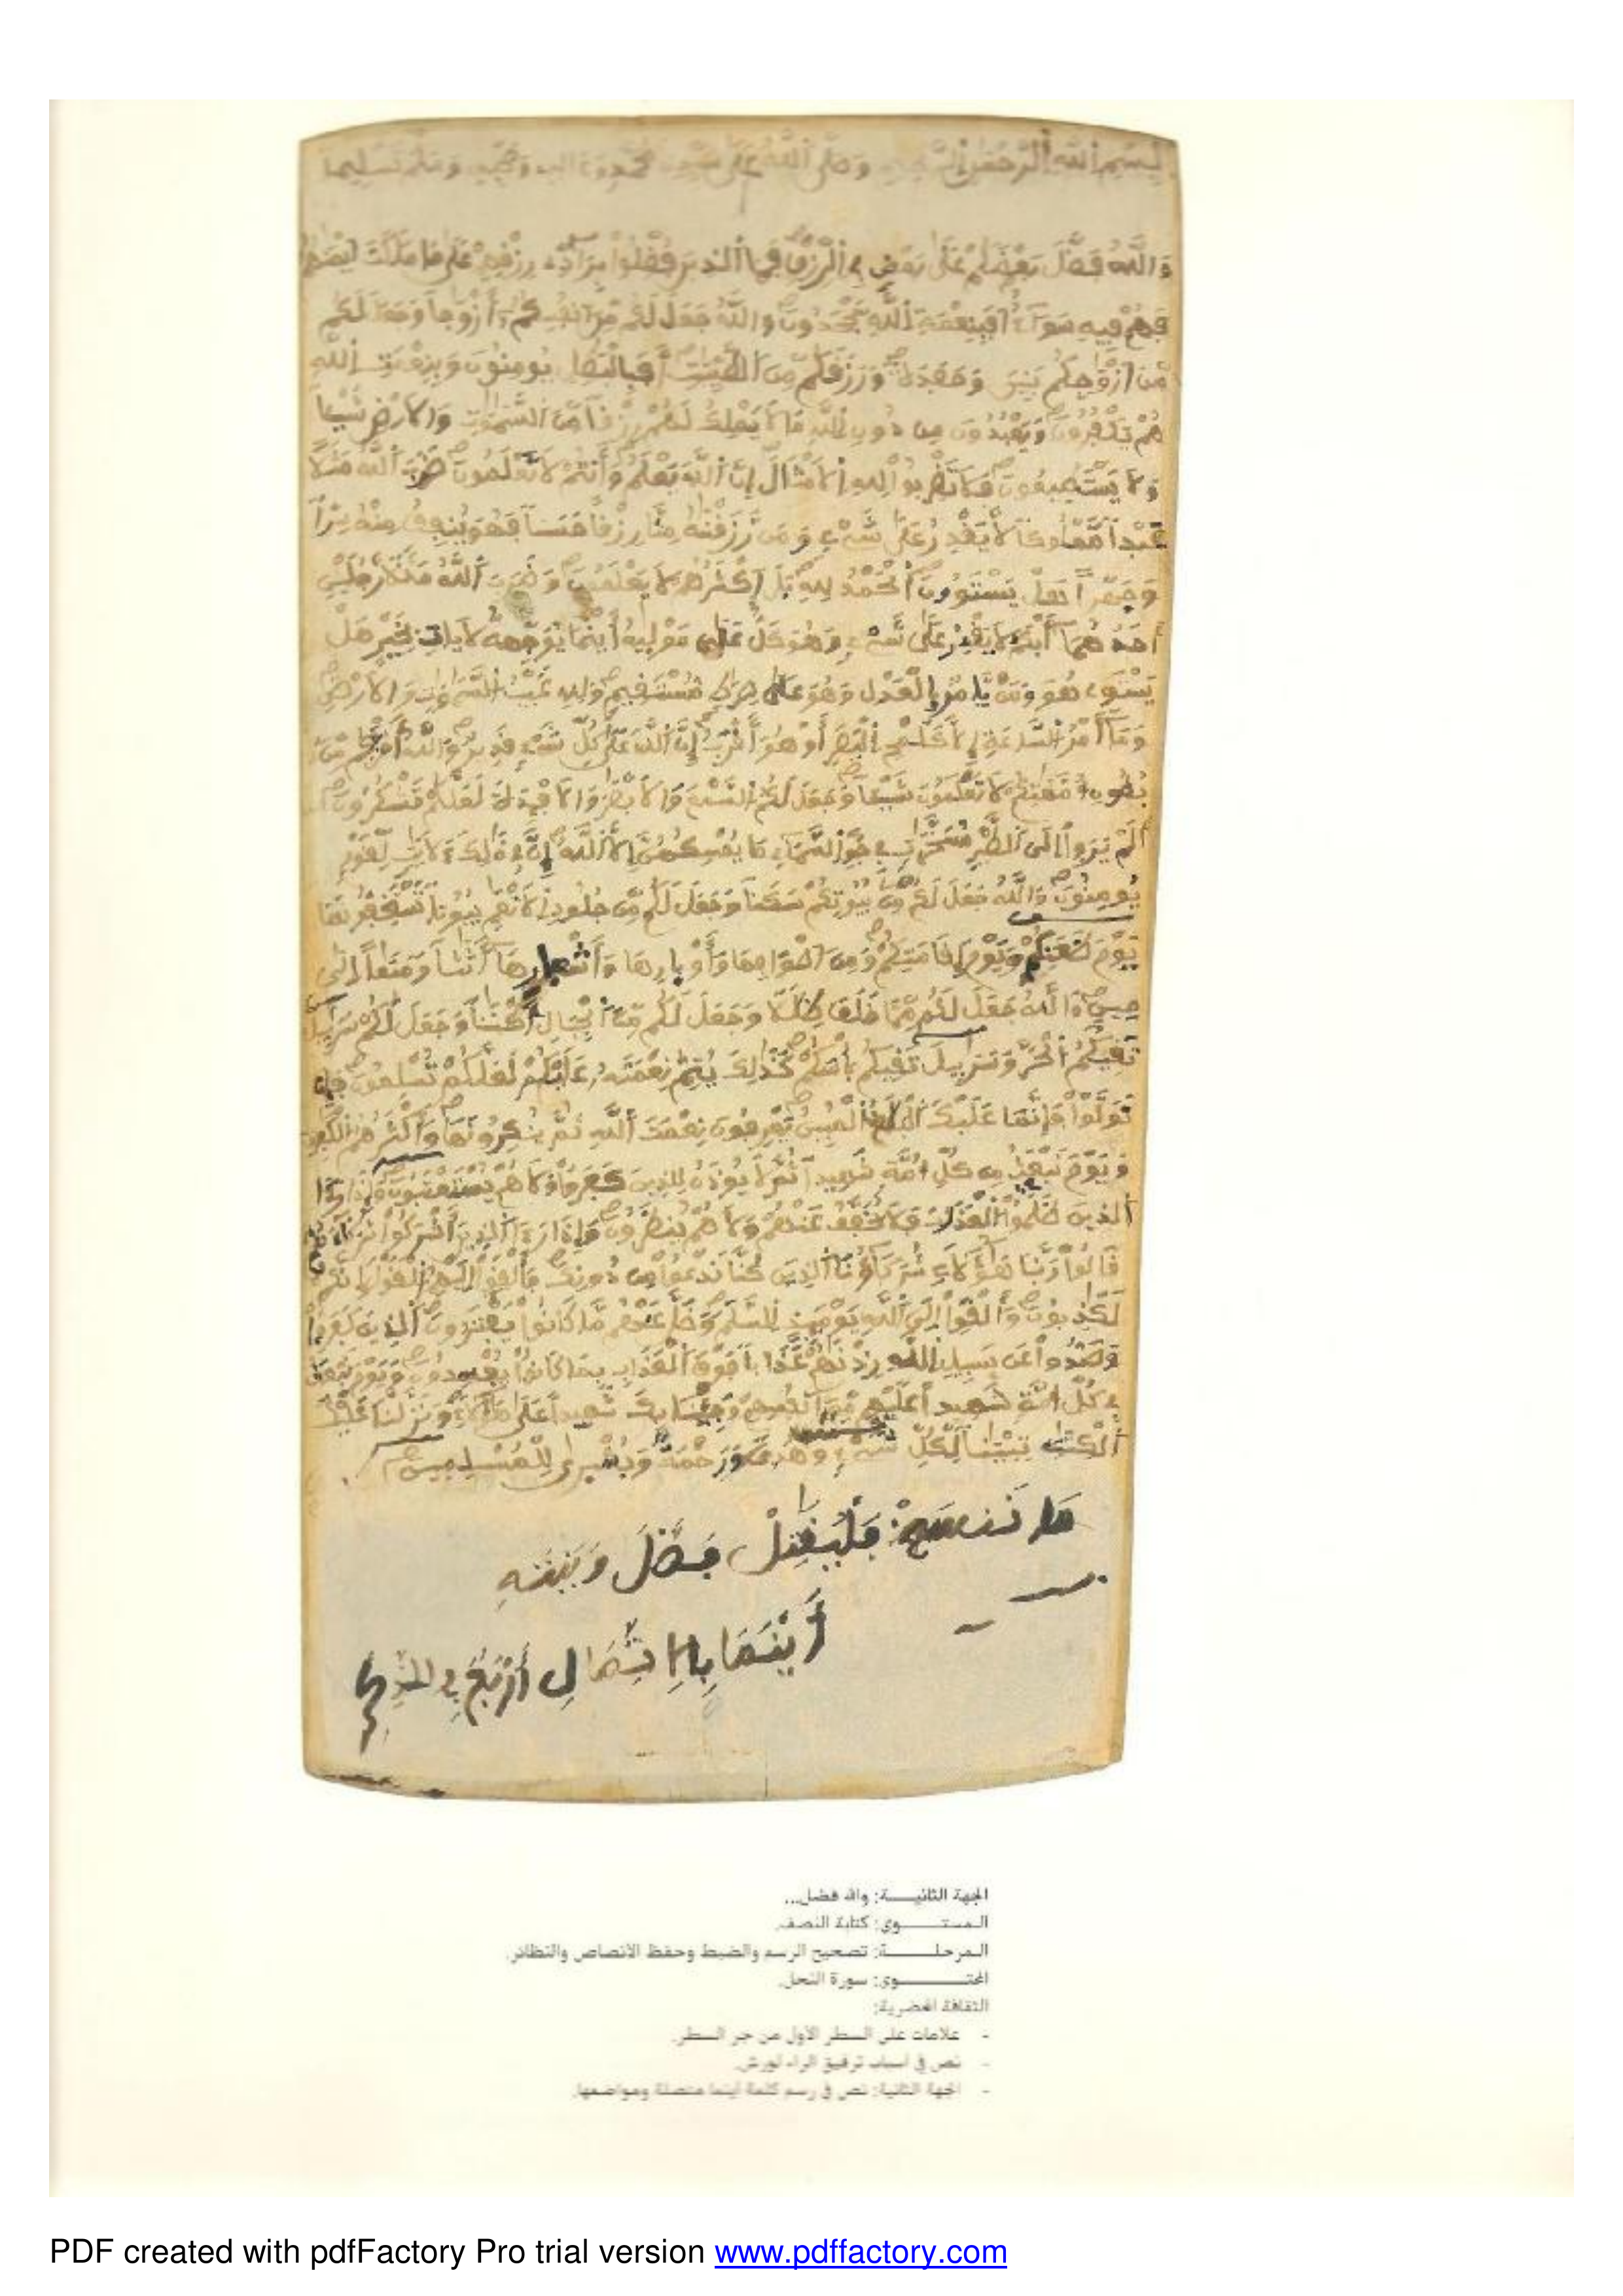 بسم الله الرحمن الرحيم وصلى الله على سيدنا محمد وءاله وصحبه وسلم تسليما
وَاللَّهُ فَضَّلَ بَعْضَكُمْ عَلَى بَعْضٍ فِي الرِّزْقِ فَمَا الذِينَ فُضِّلُوا بِرَآدِّي رِزْقِهِمْ عَلَى مَا مَلَكَتَ ايْمَنُهُمْ
فَهُمْ فِيهِ سَوَآءٌ أَفَبِنِعْمَةِ اللَّهِ يَجْحَدُونَ وَاللَّهُ جَعَلَ لَكُم مِّنَ انفُسِكُمُ أَزْوَجاً وَجَعَلَ لَكُم
مِّنَ ازْوَجِكُم بَنِينَ وَحَفَدَةً وَرَزَقَكُم مِّنَ الطَّيِّبَتِ أَفَبِالْبَطِلِ يُومِنُونَ وَبِنِعْمَتِ اللَّهِ
هُمْ يَكْفُرُونَ وَيَعْبُدُونَ مِن دُونِ اللَّهِ مَا لَا يَمْلِكُ لَهُمْ رِزْقاً مِّنَ السَّمَوَتِ وَالَارْضِ شَيْئاً
وَلَا يَسْتَطِيعُونَ فَلَا تَضْرِبُوا لِلهِ الَامْثَالَ إِنَّ اللَّهَ يَعْلَمُ وَأَنتُمْ لَا تَعْلَمُونَ ضَرَبَ اللَّهُ مَثَلًا
عَبْداً مَّمْلُوكاً لَّا يَقْدِرُ عَلَى شَيْءٍ وَمَن رَّزَقْنَهُ مِنَّا رِزْقاً حَسَناً فَهُوَ يُنفِقُ مِنْهُ سِرّاً
وَجَهْراً هَلْ يَسْتَوُونَ الْحَمْدُ لِلهِ بَلَ اَكْثَرُهُمْ لَا يَعْلَمُونَ وَضَرَبَ اللَّهُ مَثَلًا رَّجُلَيْنِ
أَحَدُهُمَا أَبْكَمُ لَا يَقْدِرُ عَلَى شَيْءٍ وَهُوَ كَلٌّ عَلَى مَوْلَيهُ أَيْنَمَا يُوَجِّههُّ لَا يَاتِ بِخَيْرٍ هَلْ
يَسْتَوِي هُوَ وَمَنْ يَّامُرُ بِالْعَدْلِ وَهُوَ عَلَى صِرَطٍ مُّسْتَقِيمٍ وَلِلهِ غَيْبُ السَّمَوَتِ وَالَارْضِ
وَمَآ أَمْرُ السَّاعَةِ إِلَّا كَلَمْحِ الْبَصَرِ أَوْ هُوَ أَقْرَبُ إِنَّ اللَّهَ عَلَى كُلِّ شَيْءٍ قَدِيرٌ وَاللَّهُ أَخْرَجَكُم مِّنْ
بُطُونِ أُمَّهَتِكُمْ لَا تَعْلَمُونَ شَيْئاً وَجَعَلَ لَكُمُ السَّمْعَ وَالَابْصَرَ وَالَافْئِدَةَ لَعَلَّكُمْ تَشْكُرُونَ
أَلَمْ يَرَوِا الَى الطَّيْرِ مُسَخَّرَتٍ فِي جَوِّ السَّمَآءِ مَا يُمْسِكُهُنَّ إِلَّا اللَّهُ إِنَّ فِي ذَلِكَ لَأيَتٍ لِّقَوْمٍ
يُومِنُونَ وَاللَّهُ جَعَلَ لَكُم مِّنْ بُيُوتِكُمْ سَكَناً وَجَعَلَ لَكُم مِّن جُلُودِ الَانْعَمِ بُيُوتاً تَسْتَخِفُّونَهَا
يَوْمَ ظَعَنِكُمْ وَيَوْمَ إِقَامَتِكُمْ وَمِنَ اَصْوَافِهَا وَأَوْبِارِهَا وَأَشْعِارِهَآ أَثَثاً وَمَتَعاً اِلَى
حِينٍ وَاللَّهُ جَعَلَ لَكُم مِّمَّا خَلَقَ ظِلَلًا وَجَعَلَ لَكُم مِّنَ الْجِبَالِ أَكْنَناً وَجَعَلَ لَكُمْ سَرَبِيلَ
تَقِيكُمُ الْحَرَّ وَسَرَبِيلَ تَقِيكُم بَأْسَكُمْ كَذَلِكَ يُتِمُّ نِعْمَتَهُ عَلَيْكُمْ لَعَلَّكُمْ تُسْلِمُونَ فَإِن
تَوَلَّوْا فَإِنَّمَا عَلَيْكَ الْبَلَغُ الْمُبِينُ يَعْرِفُونَ نِعْمَتَ اللَّهِ ثُمَّ يُنكِرُونَهَا وَأَكْثَرُهُمُ الْكَفِرُونَ
وَيَوْمَ نَبْعَثُ مِن كُلِّ أُمَّةٍ شَهِيداً ثُمَّ لَا يُوذَنُ لِلذِينَ كَفَرُوا وَلَا هُمْ يُسْتَعْتَبُونَ وَإِذَا رَءَا
الذِينَ ظَلَمُوا الْعَذَابَ فَلَا يُخَفَّفُ عَنْهُمْ وَلَا هُمْ يُنظَرُونَ وَإِذَا رَءَا الذِينَ أَشْرَكُوا شُرَكَآءَهُمْ
قَالُوا رَبَّنَا هَؤُلَآءِ شُرَكَآؤُنَا الذِينَ كُنَّا نَدْعُوا مِن دُونِكَ فَأَلْقَوِا الَيْهِمُ الْقَوْلَ إِنَّكُمْ
لَكَذِبُونَ وَأَلْقَوِا الَى اللَّهِ يَوْمَئِذٍ السَّلَمَ وَضَلَّ عَنْهُم مَّا كَانُوا يَفْتَرُونَ الذِينَ كَفَرُوا
وَصَدُّوا عَن سَبِيلِ اللَّهِ زِدْنَهُمْ عَذَاباً فَوْقَ الْعَذَابِ بِمَا كَانُوا يُفْسِدُونَ وَيَوْمَ نَبْعَثُ
فِي كُلِّ أُمَّةٍ شَهِيداً عَلَيْهِم مِّنَ انفُسِهِمْ وَجِئْنَا بِكَ شَهِيداً عَلَى هَؤُلَآءِ وَنَزَّلْنَا عَلَيْكَ
الْكِتَبَ تِبْيَناً لِّكُلِّ شَيْءٍ وَهُدىً وَرَحْمَةً وَبُشْرَى لِلْمُسْلِمِينَ
أَيْنَمَا أَرْبَعٌ فِي
الجهة الثانيـــة: والله فضل...
المستــــوى: كتابة النصف.
المرحلـــة: تصحيح الرسم والضبط وحفظ الأنصاص والنظائر.
المحتــــوى: سورة النحل.
الثقافة الحضرية:
- علامات على السطر الأول من جر السطر.
- نص في أسباب ترقيق الراء لورش.
- الجهة الثانية: نص في رسم كلمة أينما متصلة ومواضعها.
PDF created with pdfFactory Pro trial version www.pdffactory.com